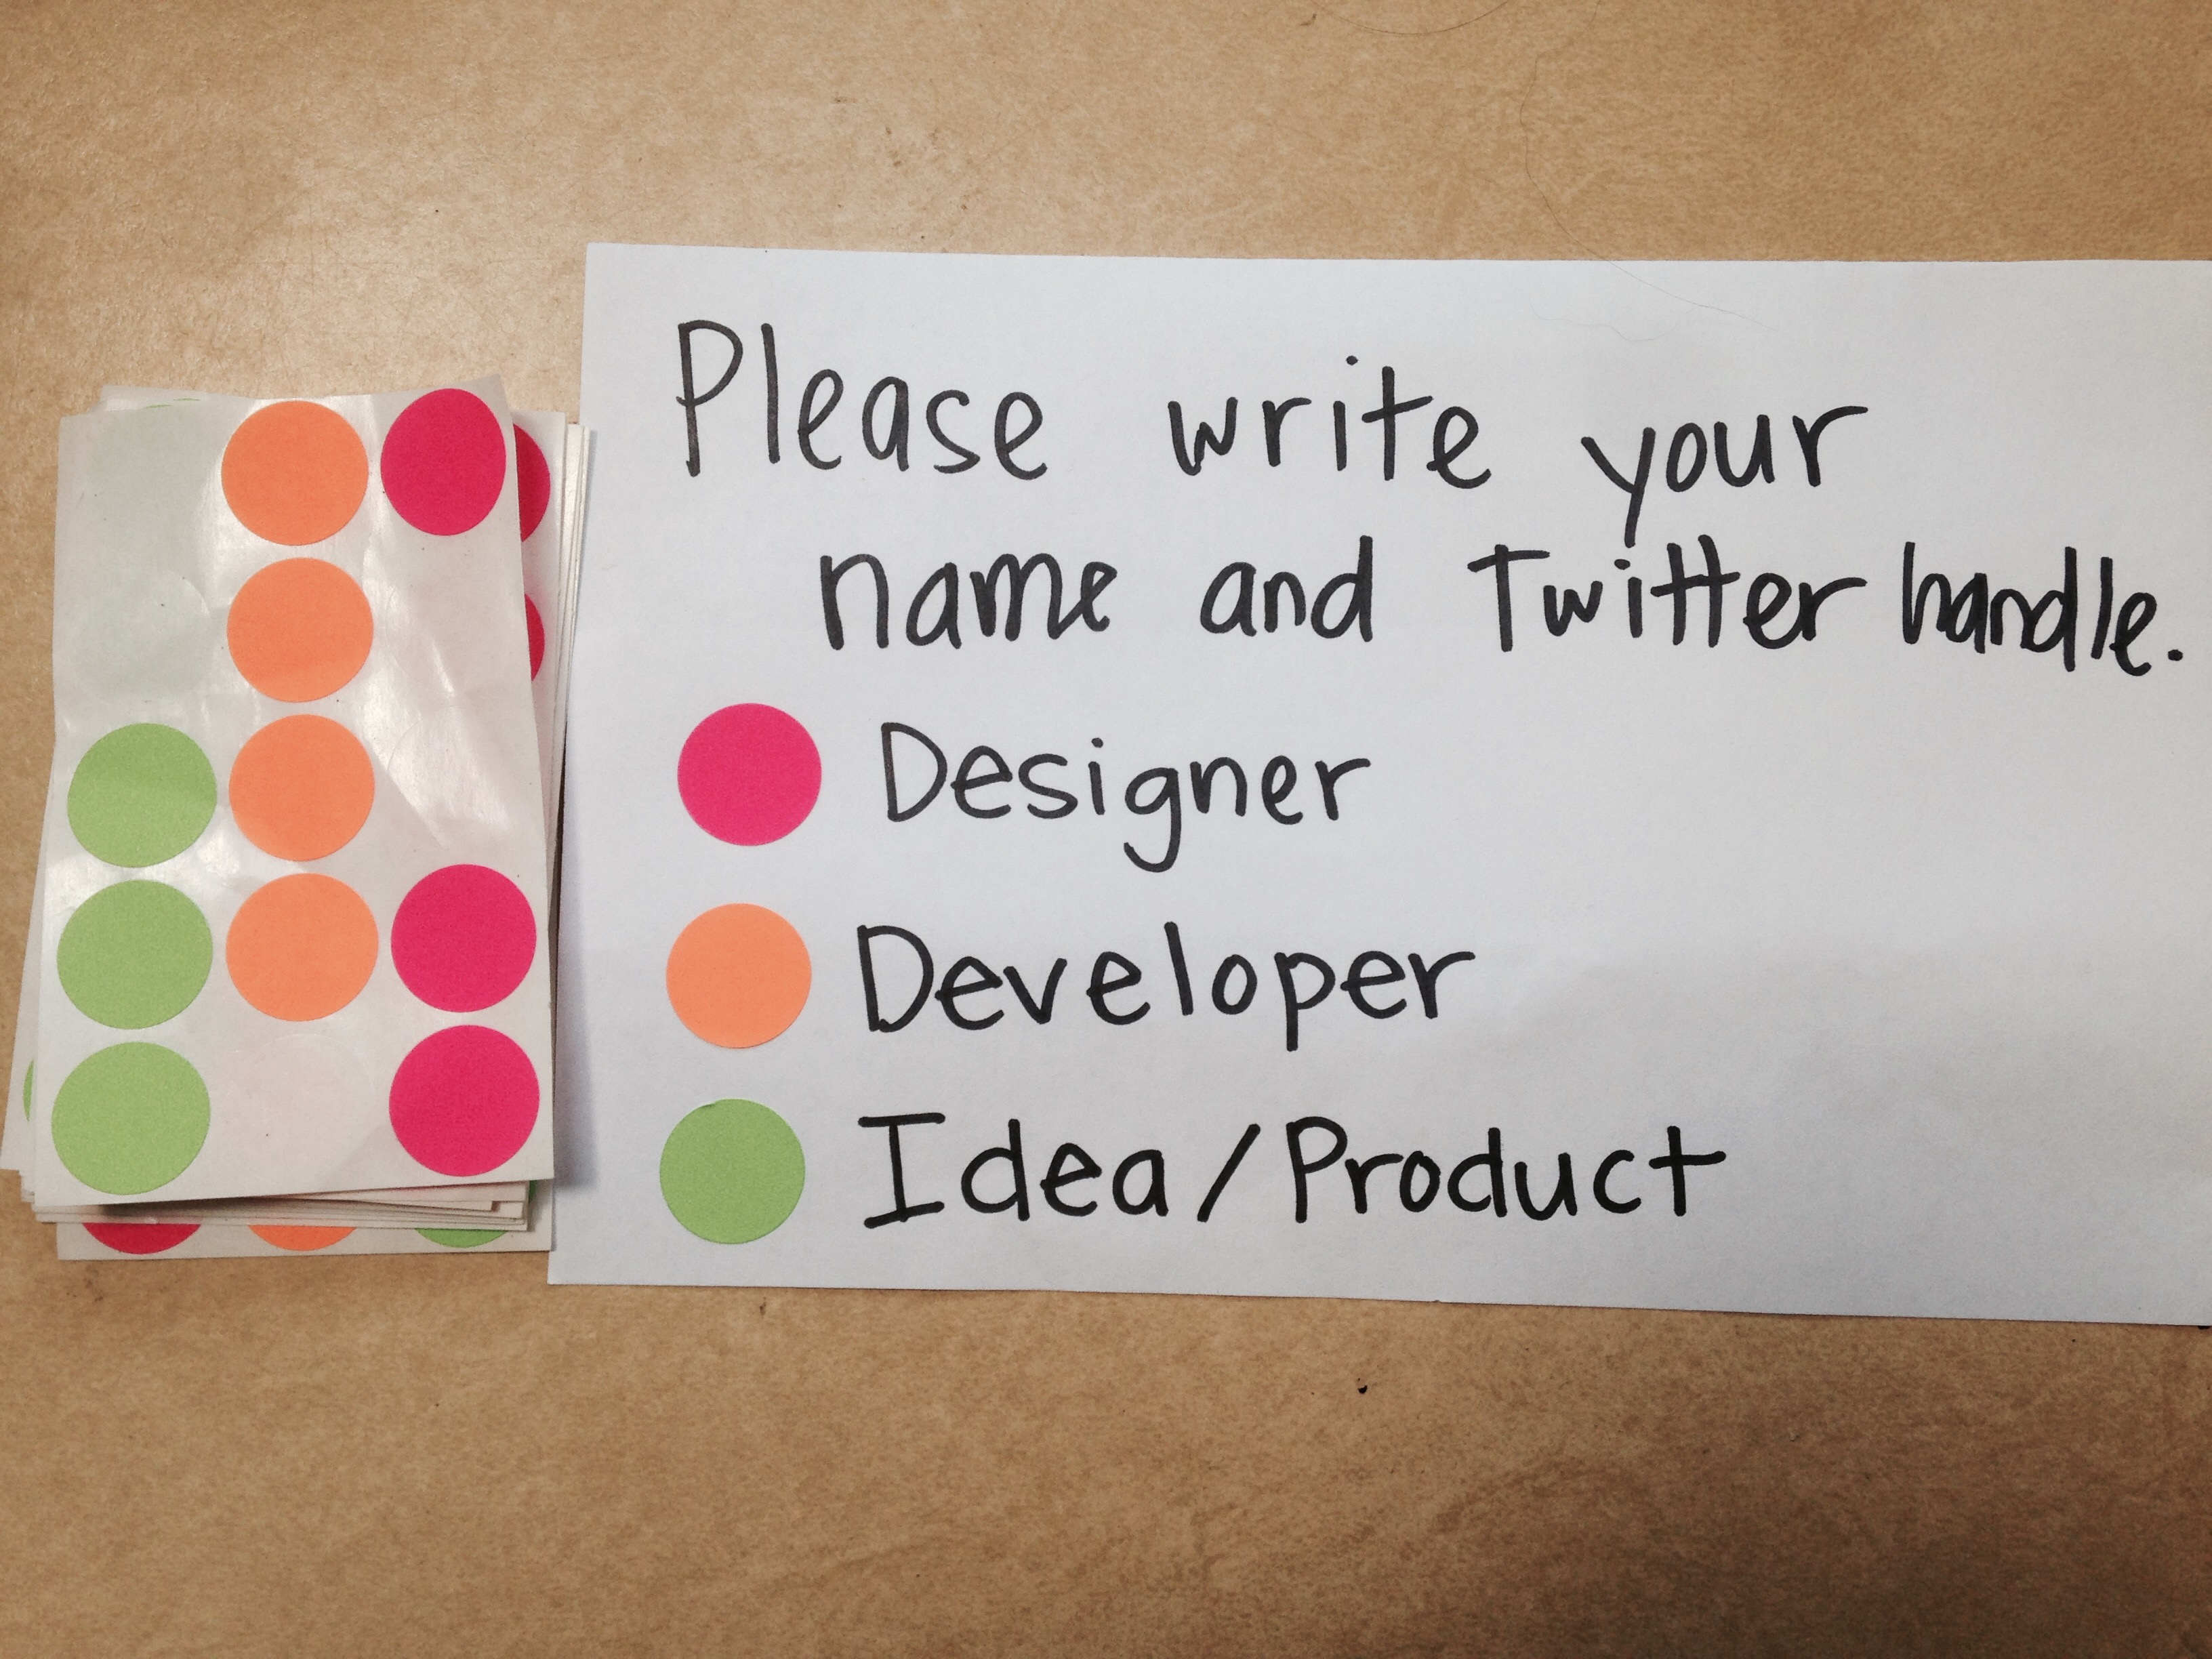 Please write your
name and Twitter handle.
Designer
Developer
Idea/Product